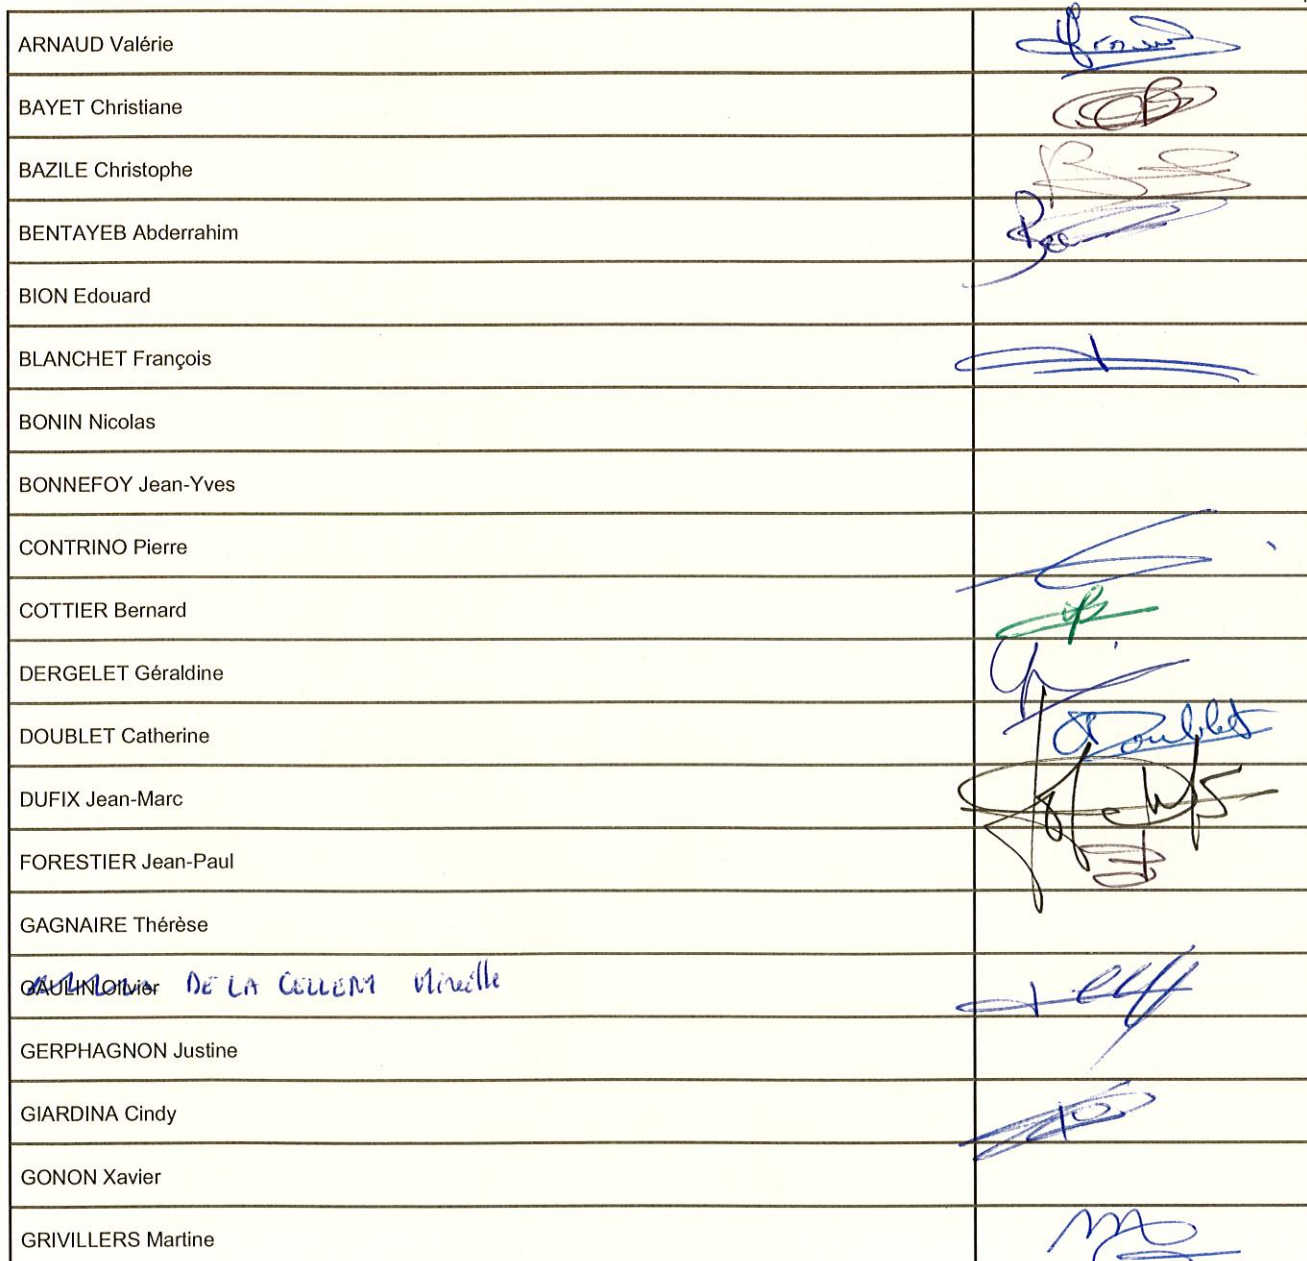 ARNAUD Valérie
BAYET Christiane
BAZILE Christophe
BENTAYEB Abderrahim
BION Edouard
BLANCHET François
BONIN Nicolas
BONNEFOY Jean-Yves
CONTRINO Pierre
COTTIER Bernard
DERGELET Géraldine
DOUBLET Catherine
Doublet
DUFIX Jean-Marc
FORESTIER Jean-Paul
GAGNAIRE Thérèse
GAULIN Olivier DE LA CELLERY Mireille
GERPHAGNON Justine
GIARDINA Cindy
GONON Xavier
GRIVILLERS Martine